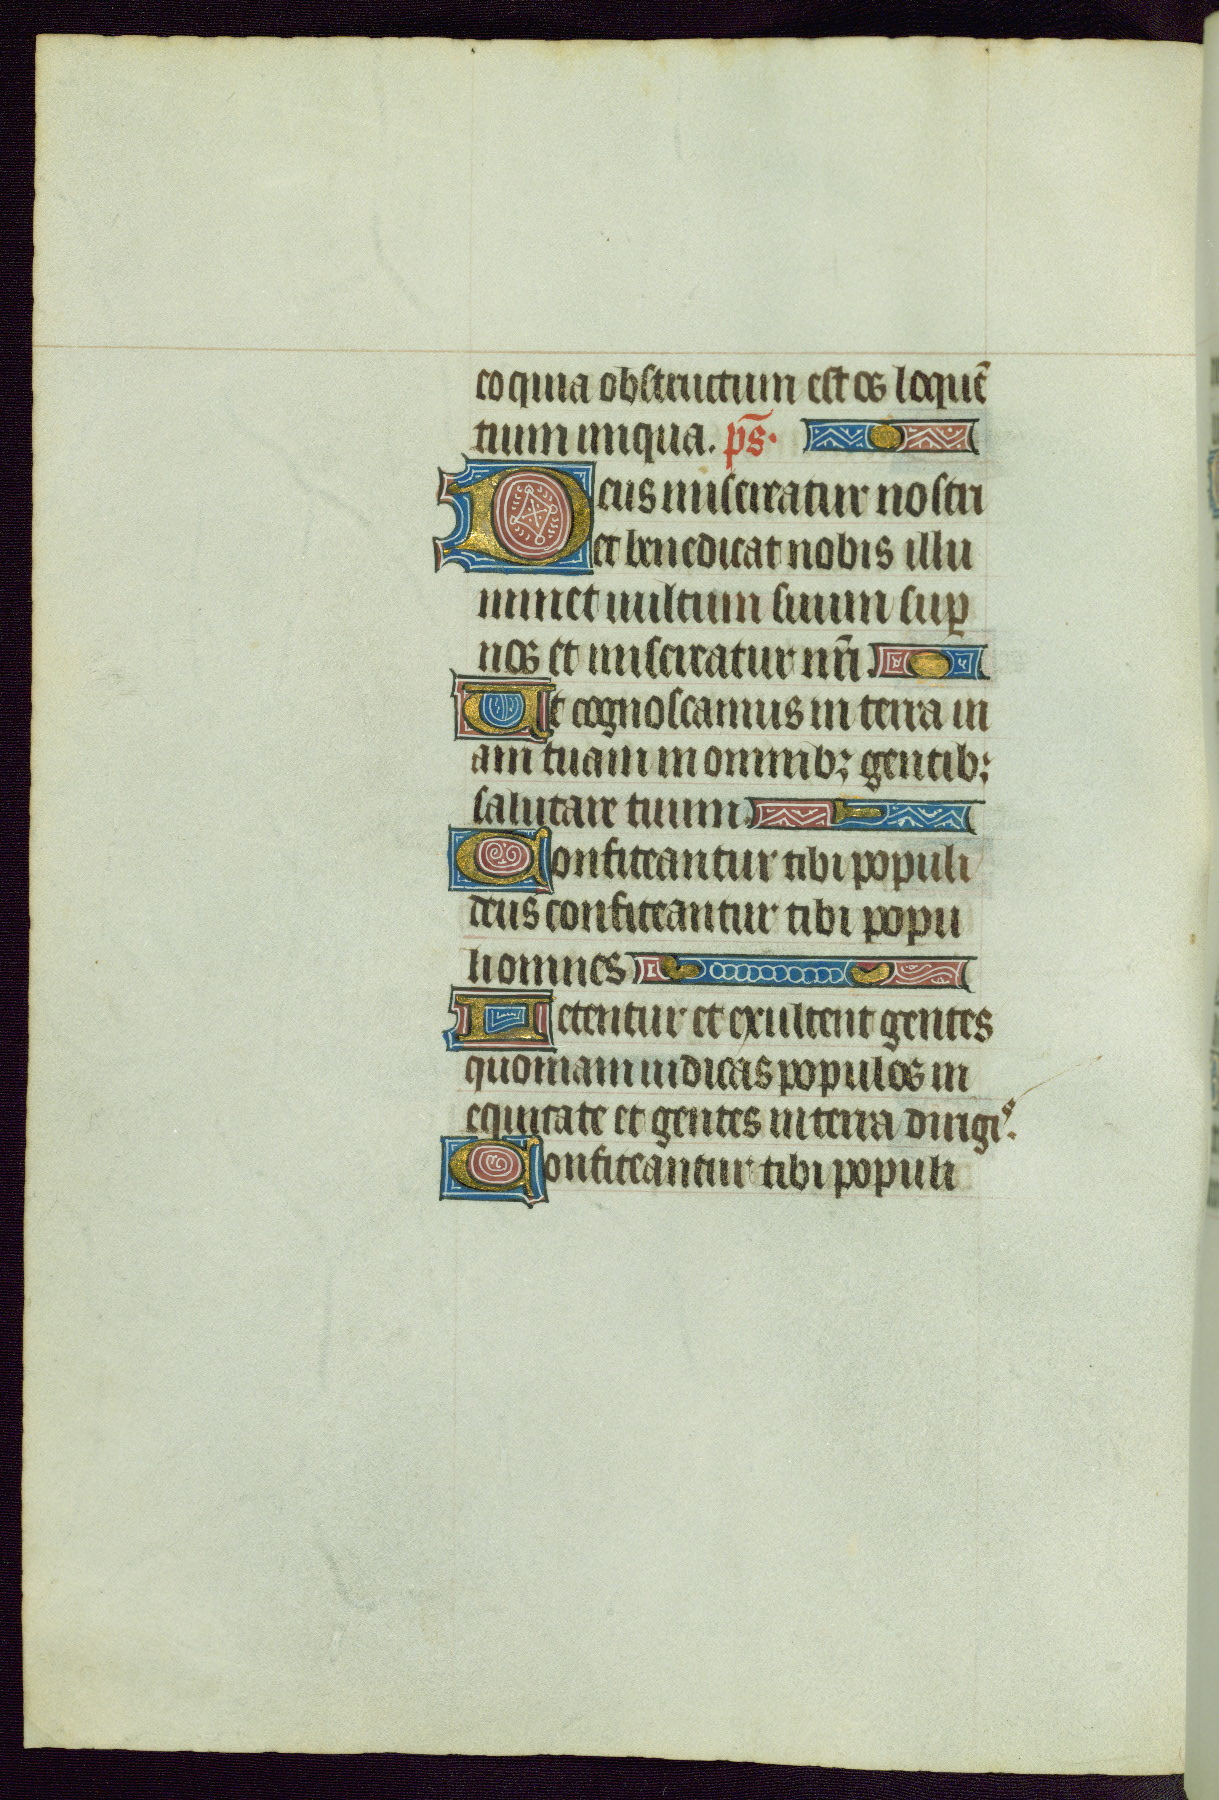 eo quia obstructum est os loquē
tium iniqua. ps̄.
Deus misereatur nostri
et benedicat nobis illu
minet uultum suum suꝑ
nos et misereatur nr̄i.
Ut cognoscamus in terra ui
am tuam in omnibꝫ gentibꝫ
salutare tuum.
Confiteantur tibi populi
deus confiteantur tibi popu
li omnes
Letentur et exultent gentes
quoniam iudicas populos in
equitate et gentes in terra dirigis.
Confiteantur tibi populi